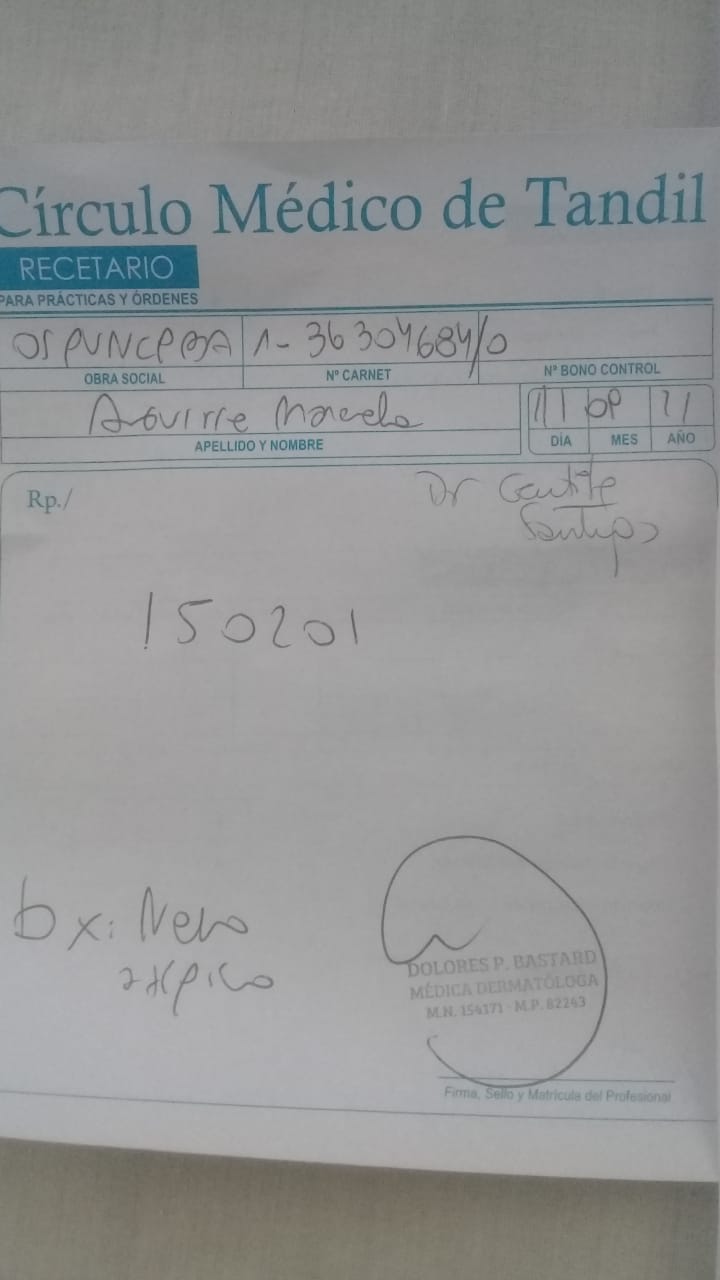 Círculo Médico de Tandil
RECETARIO
PARA PRÁCTICAS Y ÓRDENES
OSPUNCPBA 1-36304684/0
OBRA SOCIAL Nº CARNET Nº BONO CONTROL
Aguirre Marcela
APELLIDO Y NOMBRE DÍA MES AÑO
Rp./
Dr
150201
bx: Nevo
atípico
DOLORES P. BASTARD
MÉDICA DERMATÓLOGA
M.N. 154171 - M.P. 82243
Firma, Sello y Matrícula del Profesional